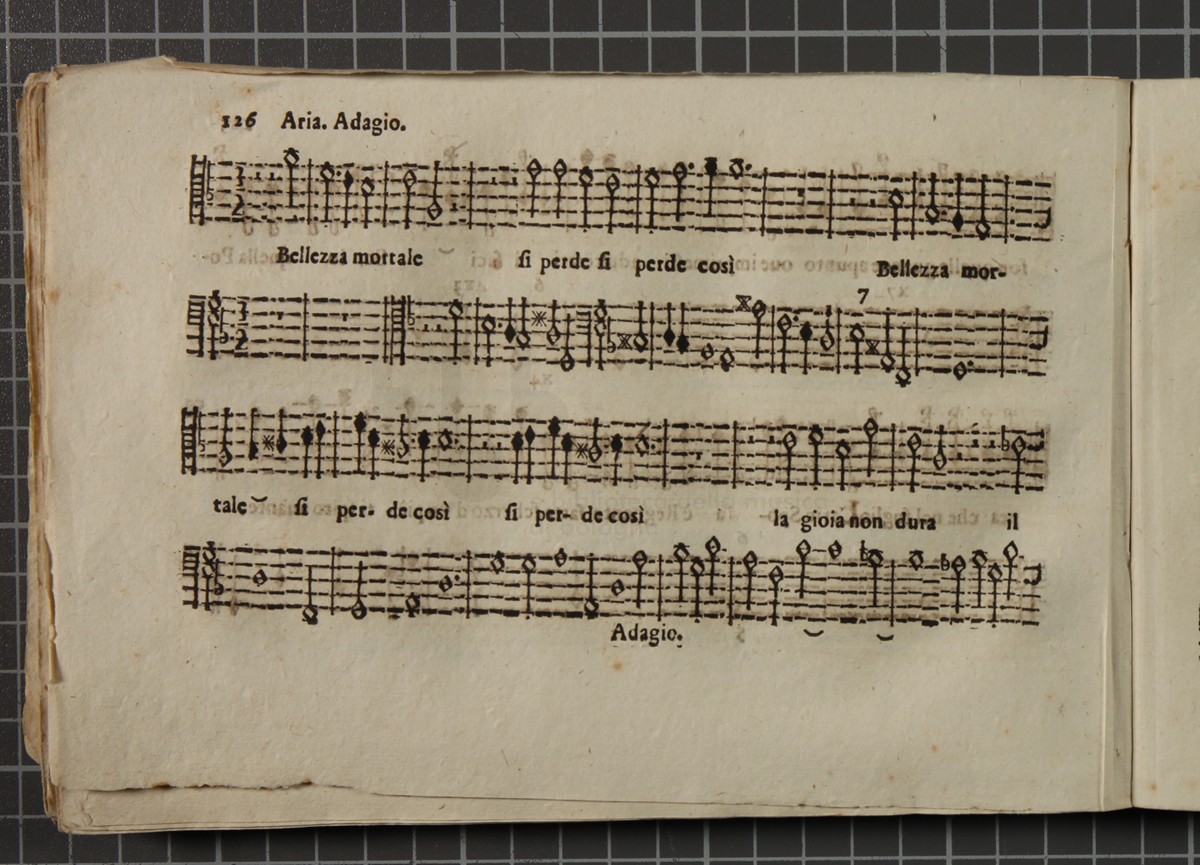 126 Aria. Adagio.
Bellezza mortale si perde si perde così Bellezza mor-
7
tale si per- de così si per- de così la gioia non dura il
Adagio.